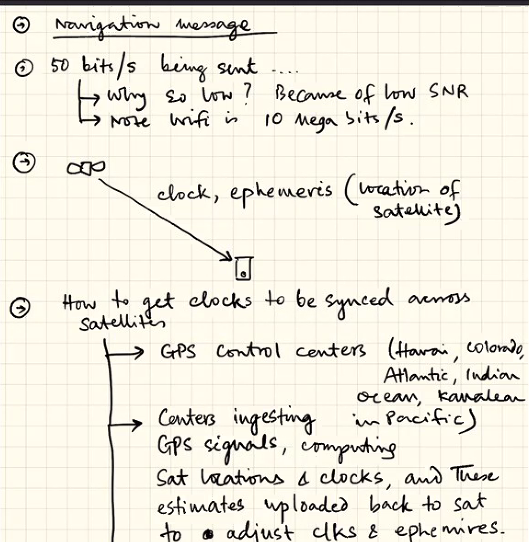 Navigation message
50 bits/s being sent ....
Why so low? Because of low SNR
Note wifi is 10 Mega bits/s.
clock, ephemeris (location of
satellite)
How to get clocks to be synced across
satellites
GPS control centers (Hawai, Colorado,
Atlantic, Indian
ocean, Kwajalean
in Pacific)
Centers ingesting
GPS signals, computing
Sat locations & clocks, and These
estimates uploaded back to sat
to adjust clks & ephemires.